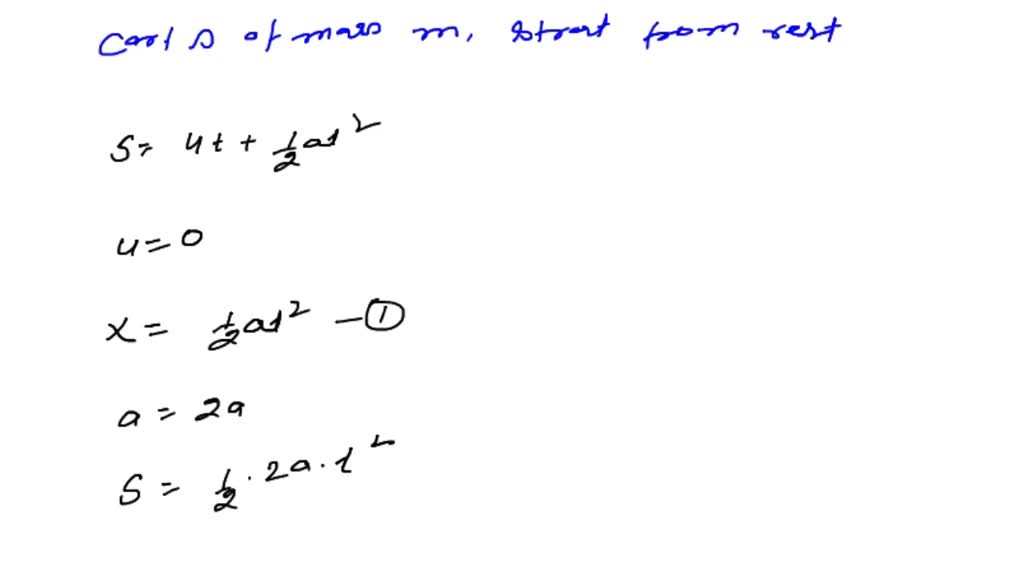 Cart s of mass m, start from rest
S = ut + 1/2 at²
u = 0
x = 1/2 at² - ①
a = 2a
S = 1/2 · 2a · t²